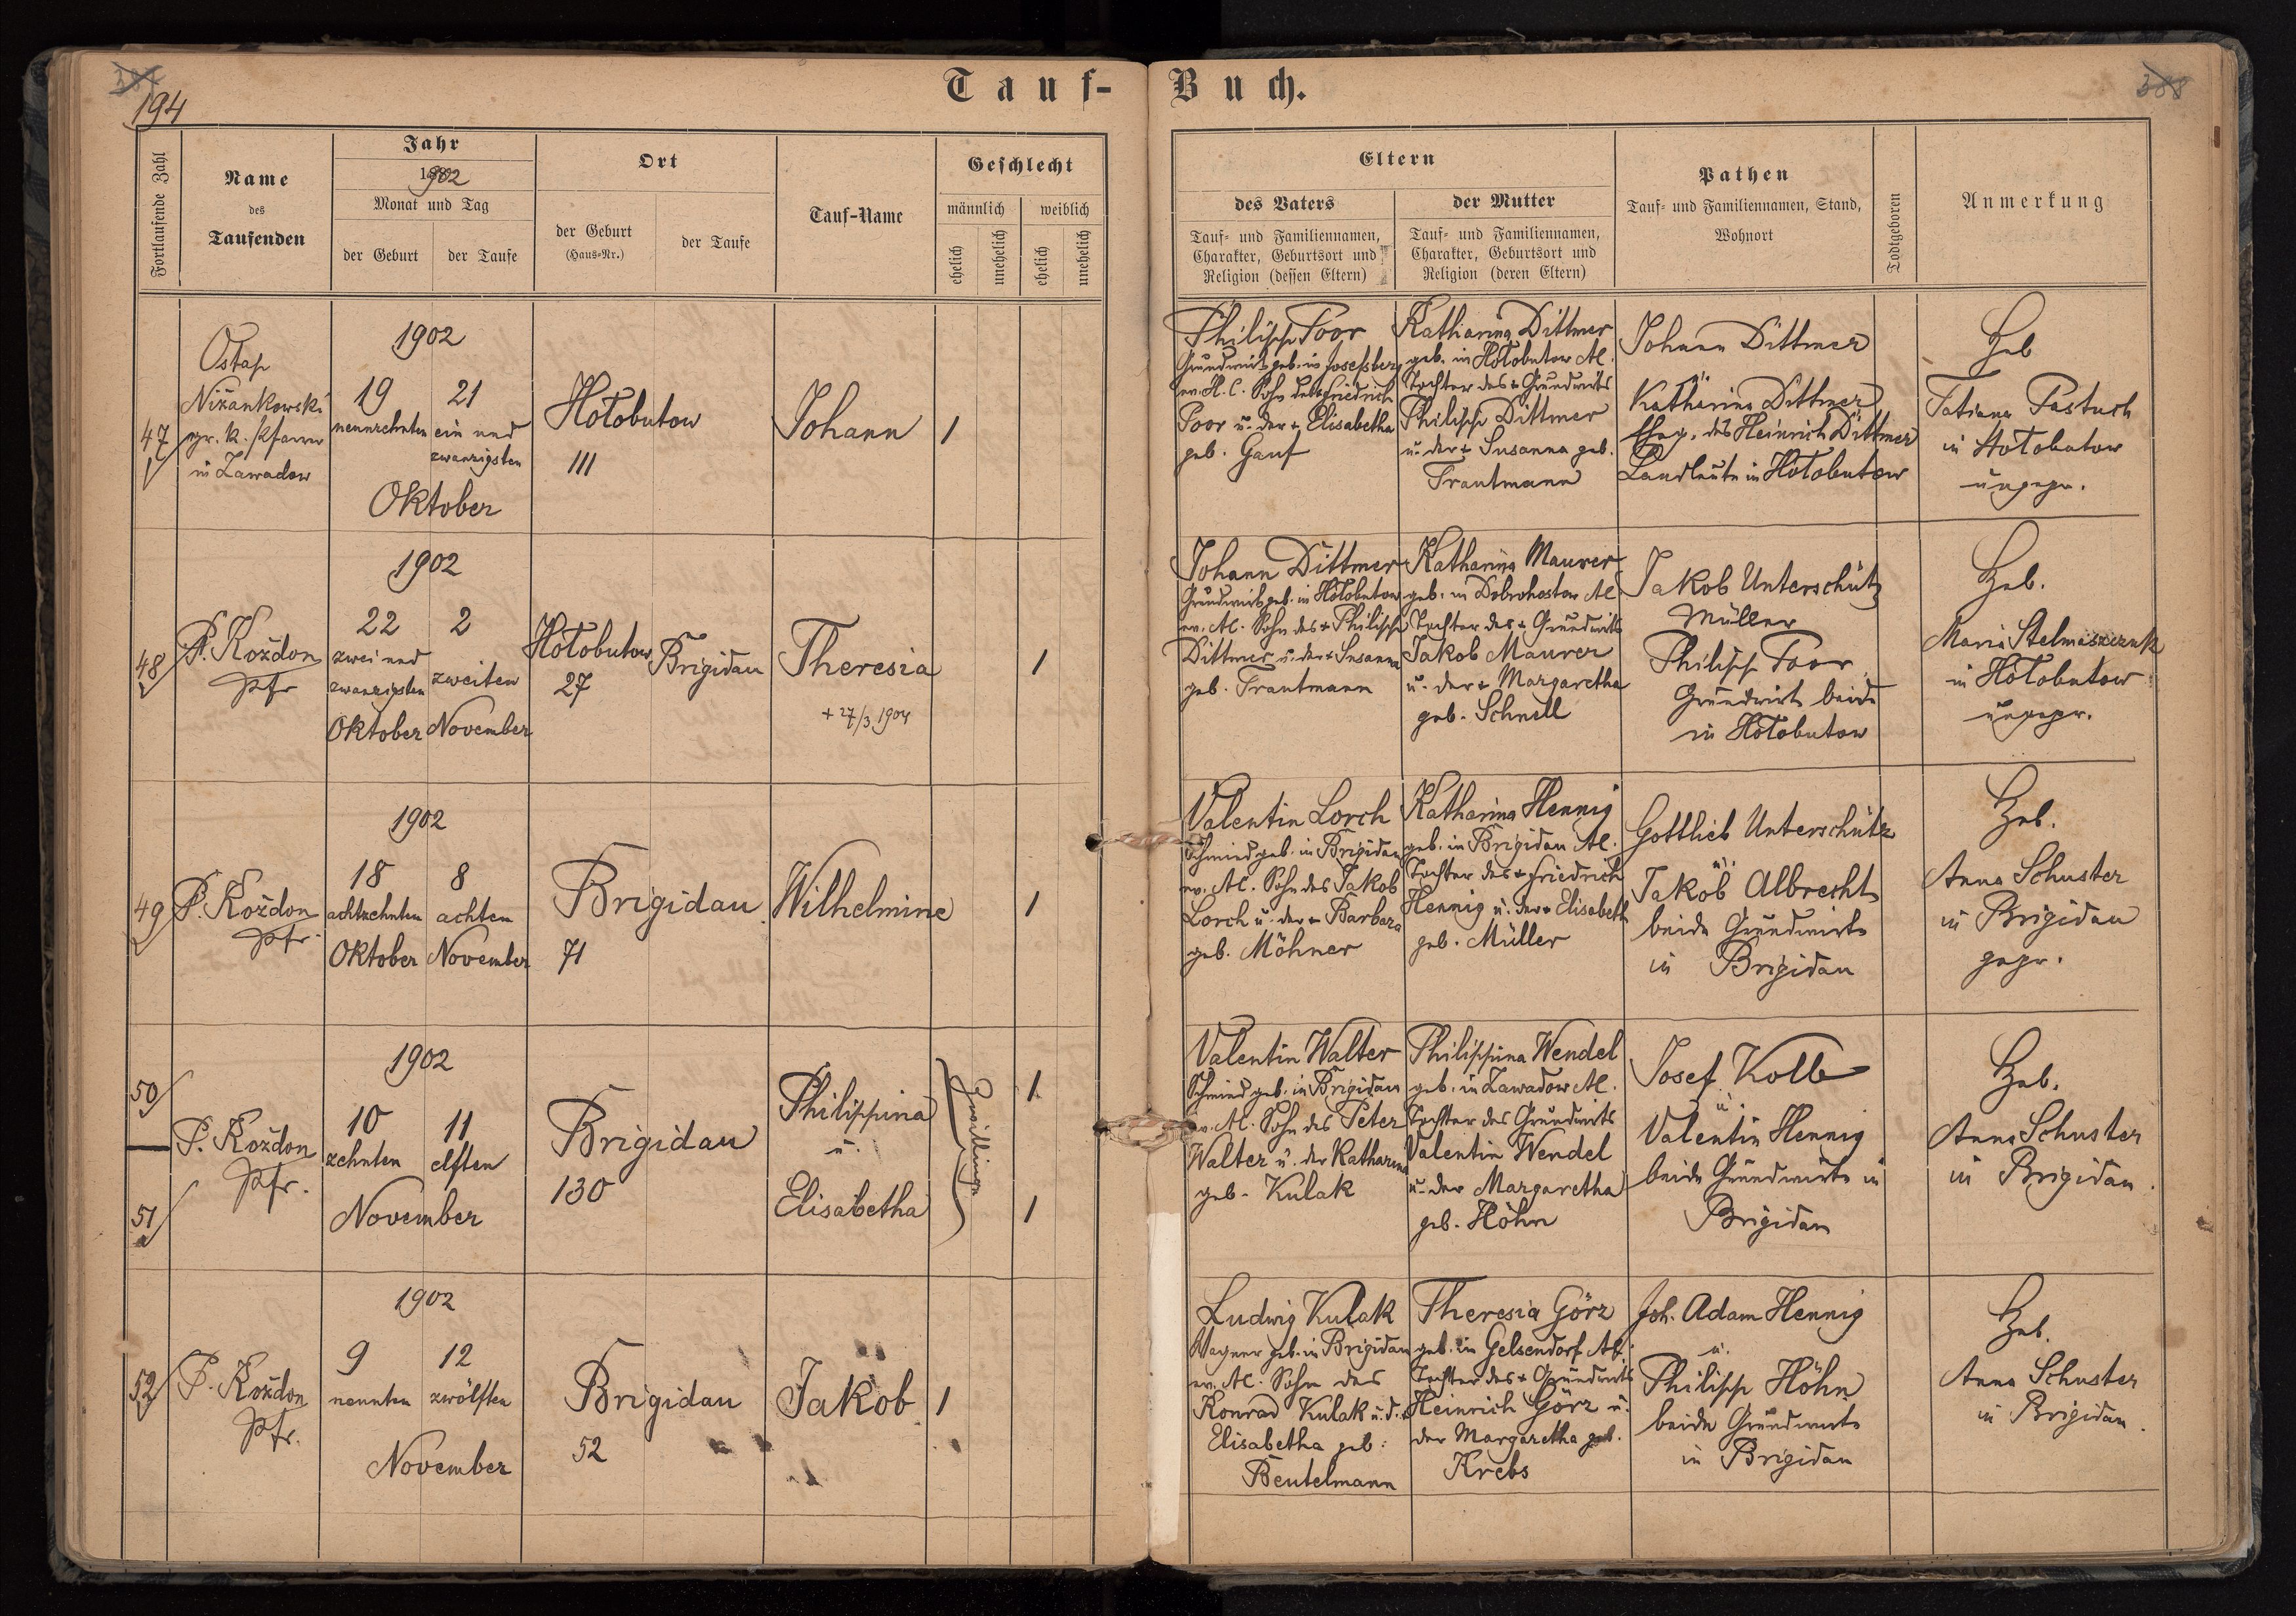 194
388
Tauf-Buch.
Fortlaufende Zahl
Name
des
Taufenden
Jahr
1902
Monat und Tag
der Geburt
der Taufe
Ort
der Geburt
(Haus-Nr.)
der Taufe
Tauf-Name
Geschlecht
männlich
weiblich
ehelich
unehelich
ehelich
unehelich
Eltern
des Vaters
Tauf- und Familiennamen,
Charakter, Geburtsort und
Religion (dessen Eltern)
der Mutter
Tauf- und Familiennamen,
Charakter, Geburtsort und
Religion (deren Eltern)
Pathen
Tauf- und Familiennamen, Stand,
Wohnort
Todtgeboren
Anmerkung
47
Ostap
Nižankowski
gr. k. Pfarrer
in Zawadow
1902
19
neunzehnten
21
ein und
zwanzigsten
Oktober
Hołobutow
111
Johann
1
Philipp Poor
Grundwirt geb. in Josefsberg
ev. H. C. Sohn des Friedrich
Poor u. der + Elisabetha
geb. Gauf
Katharina Dittmer
geb. in Hołobutow AC.
Tochter des + Grundwirts
Philipp Dittmer
u. der + Susanna geb.
Trautmann
Johann Dittmer
u.
Katharina Dittmer
Eheg. des Heinrich Dittmer
Landleute in Hołobutow
Heb.
Tatiana Pastuch
in Hołobutow
ungepr.
48
P. Kożdon
Pfr
1902
22
zwei und
zwanzigsten
Oktober
2
zweiten
November
Hołobutow
27
Brigidau
Theresia
+ 27/3 1904
1
Johann Dittmer
Grundwirt geb. in Hołobutow
ev. AC. Sohn des + Philipp
Dittmer u. der + Susanna
geb. Trautmann
Katharina Maurer
geb. in Dobrohostow AC
Tochter des + Grundwirts
Jakob Maurer
u. der + Margaretha
geb. Schnell
Jakob Unterschütz
Müller
Philipp Poor
Grundwirt beide
in Hołobutow
Heb.
Maria Stelmaszczuk
in Hołobutow
ungepr.
49
P. Kożdon
Pfr.
1902
18
achtzehnten
Oktober
8
achten
November
Brigidau
71
Wilhelmine
1
Valentin Lorch
Schmied geb. in Brigidau
ev. AC. Sohn des Jakob
Lorch u. der + Barbara
geb. Möhner
Katharina Hennig
geb. in Brigidau AC.
Tochter des + Friedrich
Hennig u. der + Elisabeth
geb. Müller
Gottlieb Unterschütz
u.
Jakob Albrecht
beide Grundwirte
in Brigidau
Heb.
Anna Schuster
in Brigidau
gepr.
50
51
P. Kożdon
Pfr.
1902
10
zehnten
11
elften
November
Brigidau
130
Philippina
u.
Elisabetha
Zwillinge
1
1
Valentin Walter
Schmied geb. in Brigidau
ev. AC. Sohn des Peter
Walter u. der Katharina
geb. Kulak
Philippina Wendel
geb. in Zawadow AC.
Tochter des Grundwirts
Valentin Wendel
u. der Margaretha
geb. Höhn
Josef Kolb
u.
Valentin Hennig
beide Grundwirte in
Brigidau
Heb.
Anna Schuster
in Brigidau.
52
P. Kożdon
Pfr.
1902
9
neunten
12
zwölften
November
Brigidau
52
Jakob
1
Ludwig Kulak
Wagner geb. in Brigidau
ev. AC. Sohn des
Konrad Kulak u. d. +
Elisabetha geb:
Beutelmann
Theresia Görz
geb. in Gelsendorf AC.
Tochter des + Grundwirts
Heinrich Görz u.
der Margaretha geb.
Krebs
Joh. Adam Hennig
u.
Philipp Höhn
beide Grundwirte
in Brigidau
Heb.
Anna Schuster
in Brigidau.